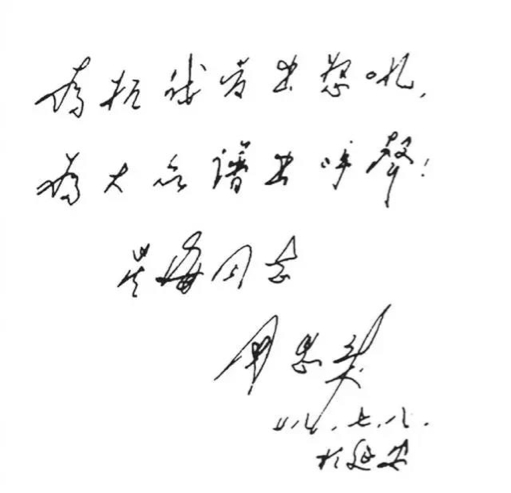 为抗战发出怒吼，
为大众谱出呼声！
星海同志
周恩来
廿八．七．八．
于延安